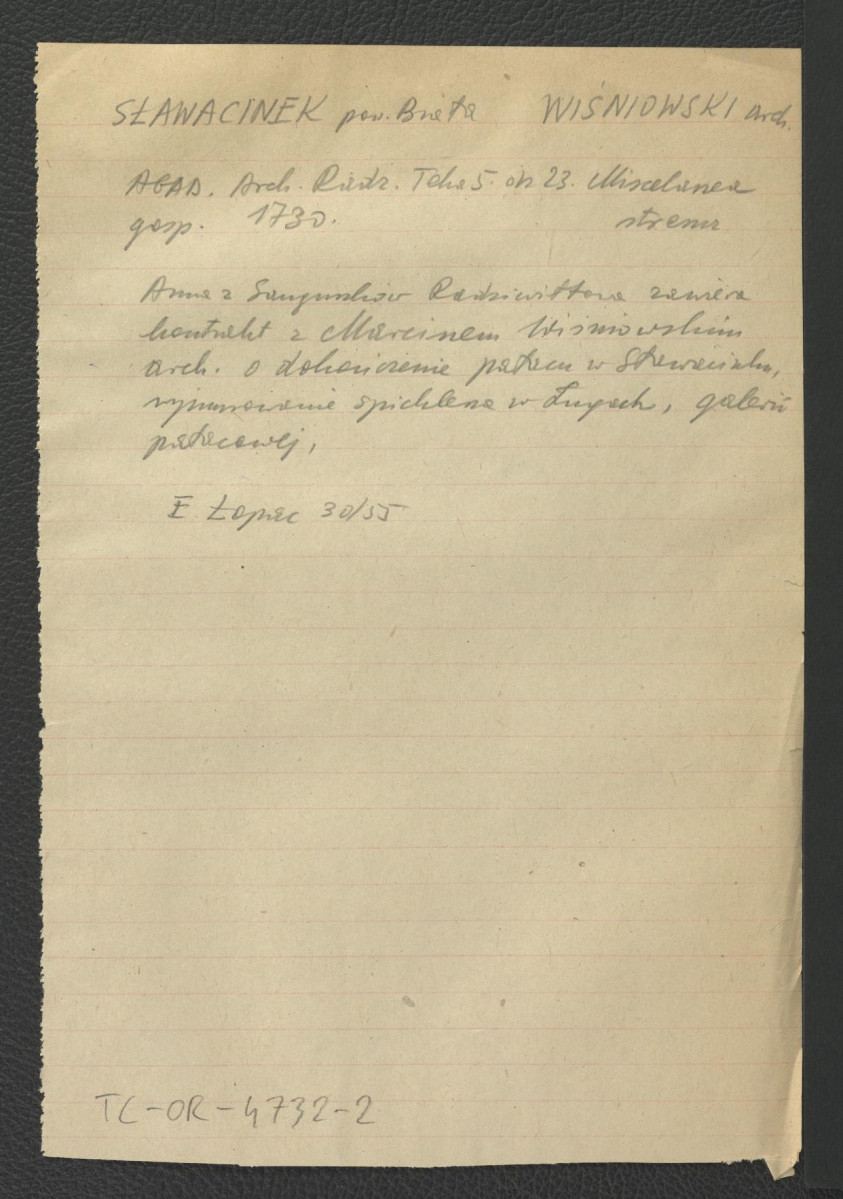 SŁAWACINEK pow. Biała WIŚNIOWSKI arch.
AGAD. Arch. Radz. Teka 5. 23. Miscelanea
gosp. 1730.
Anna z Sanguszków Radziwiłłowa zawiera
kontrakt z Marcinem Wiśniowskim
arch. o dokończenie pałacu w Sławacinku,
wymurowanie spichlerza w Ługach, galerii
pałacowej,
E Łopiec 30/55
TC-OR-4732-2